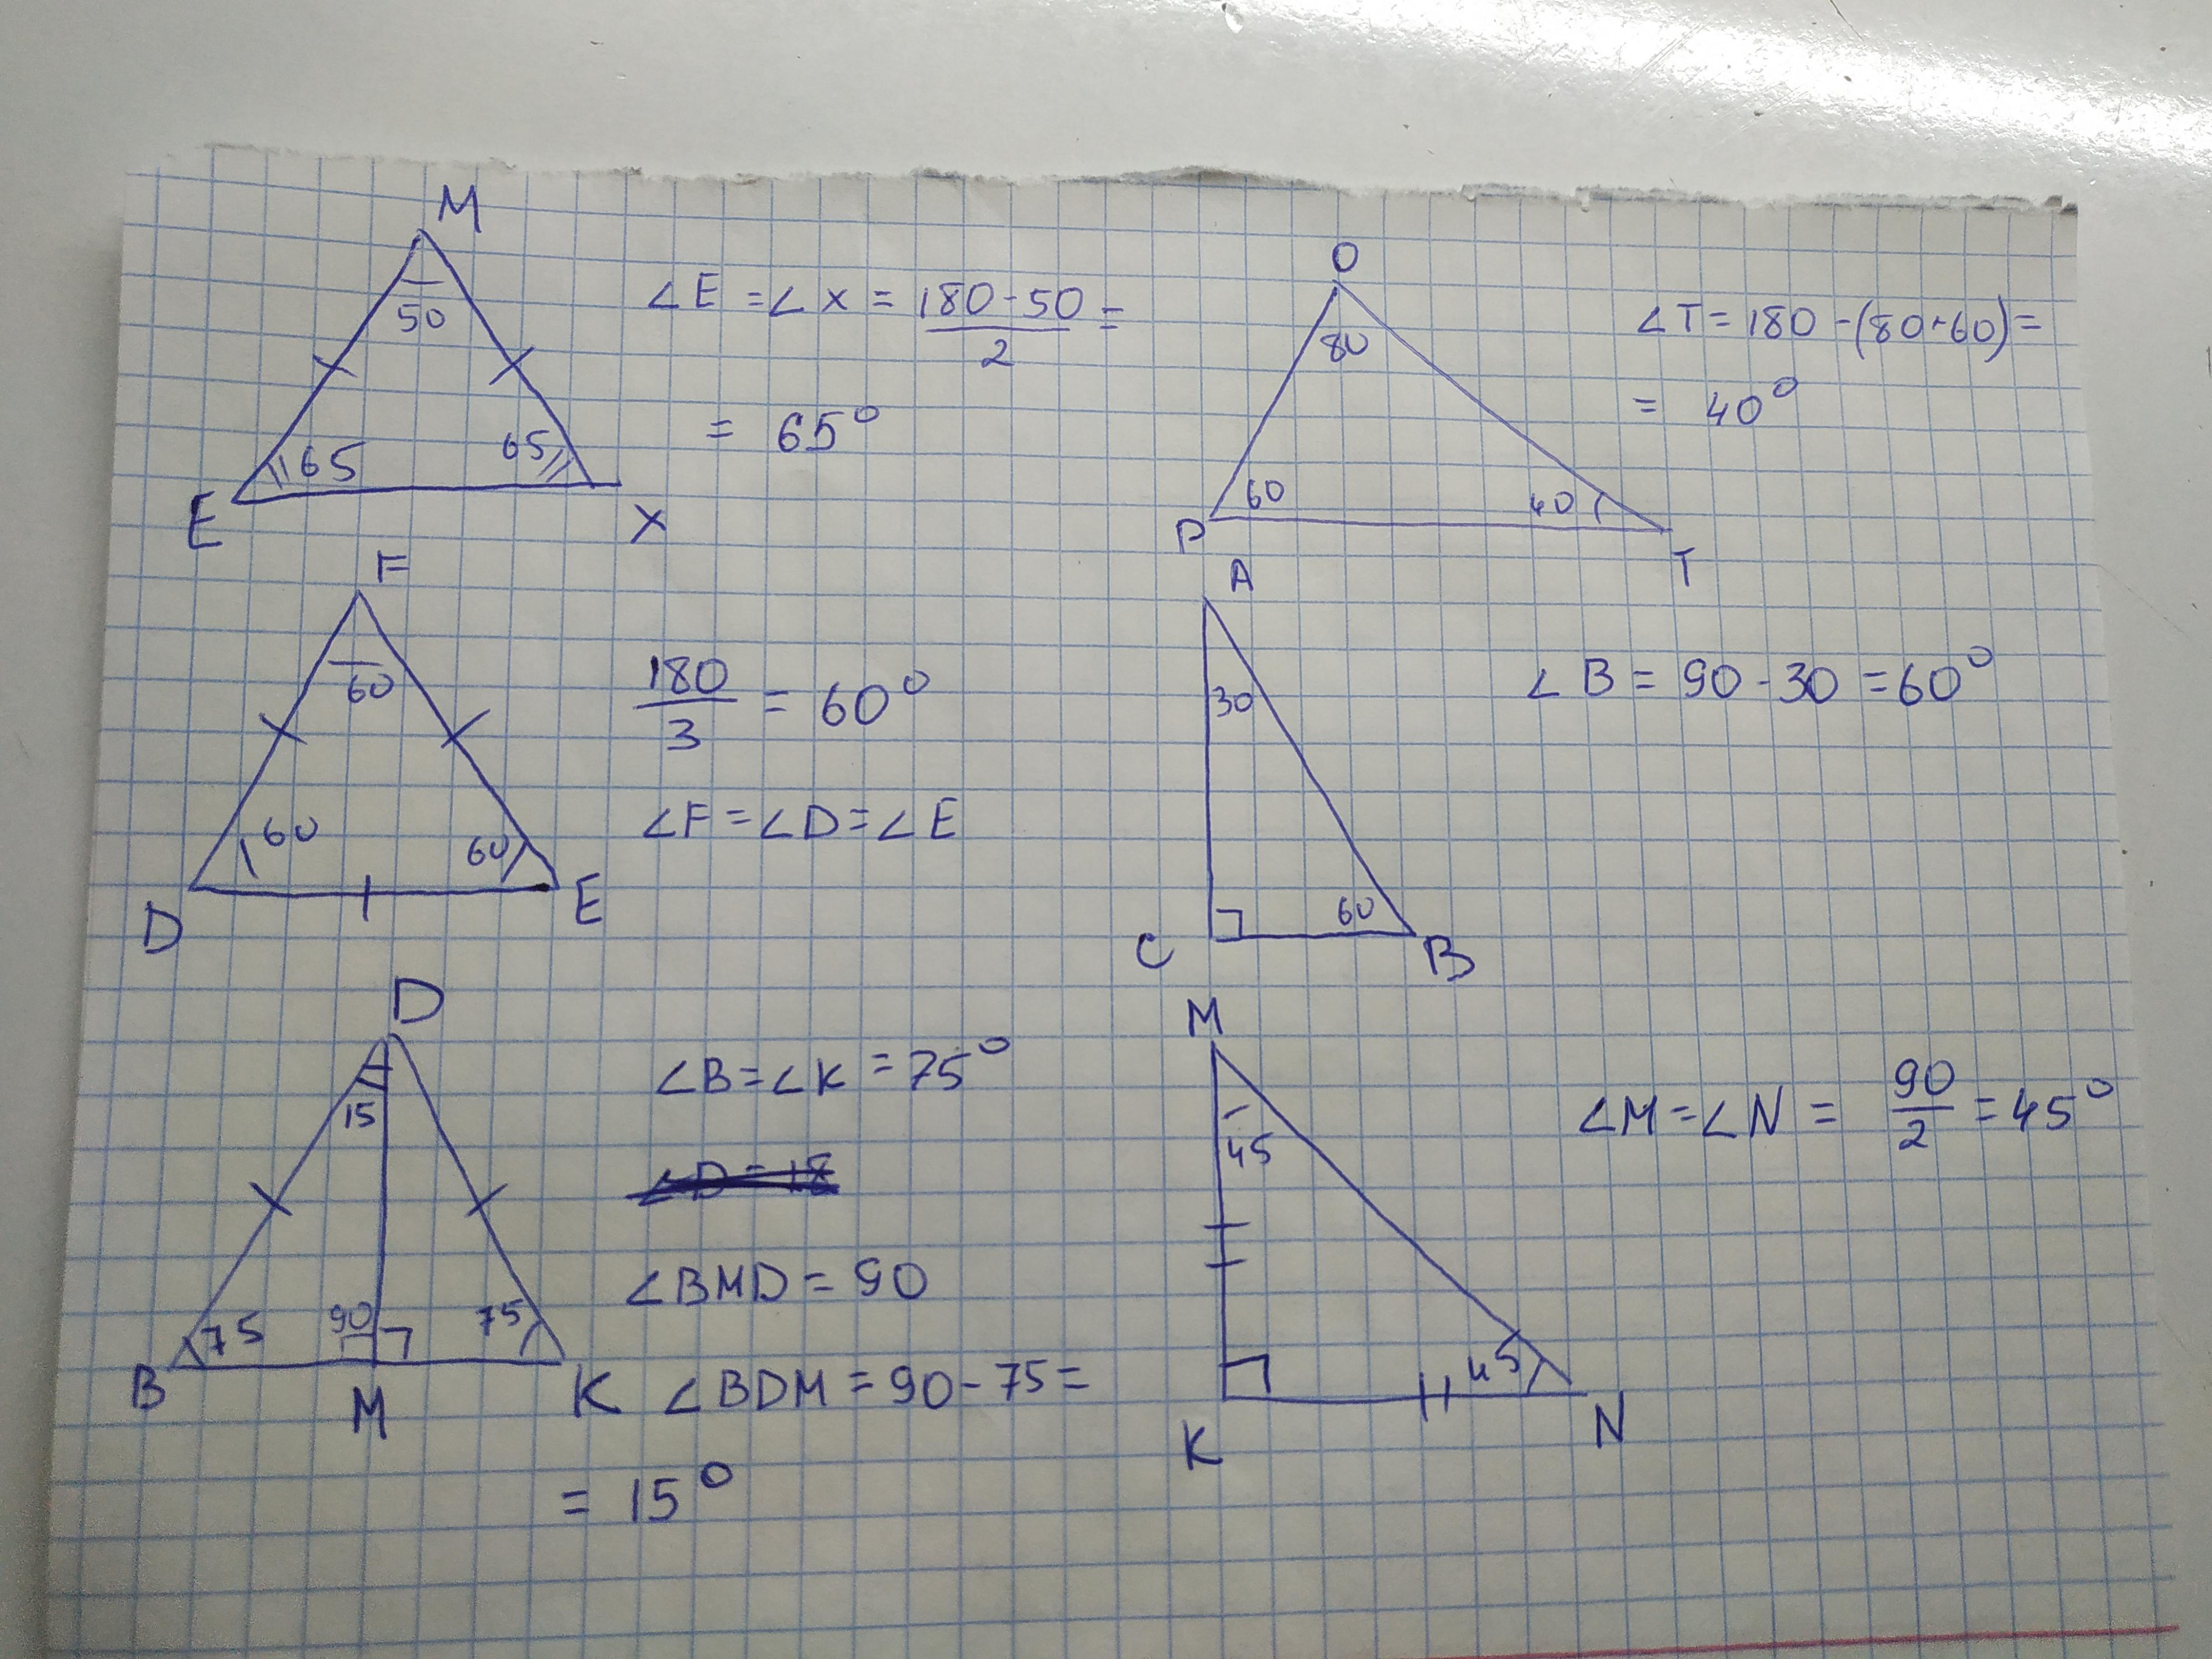 M
50
65
65
E
X
∠E = ∠X = (180 - 50)/2 =
= 65°
O
80
60
40
P
T
∠T = 180 - (80+60) =
= 40°
F
60
60
60
D
E
180/3 = 60°
∠F = ∠D = ∠E
A
30
60
C
B
∠B = 90 - 30 = 60°
D
15
75
90
75
B
M
K
∠B = ∠K = 75°
∠D = 18
∠BMD = 90
∠BDM = 90 - 75 =
= 15°
M
45
45
K
N
∠M = ∠N = 90/2 = 45°